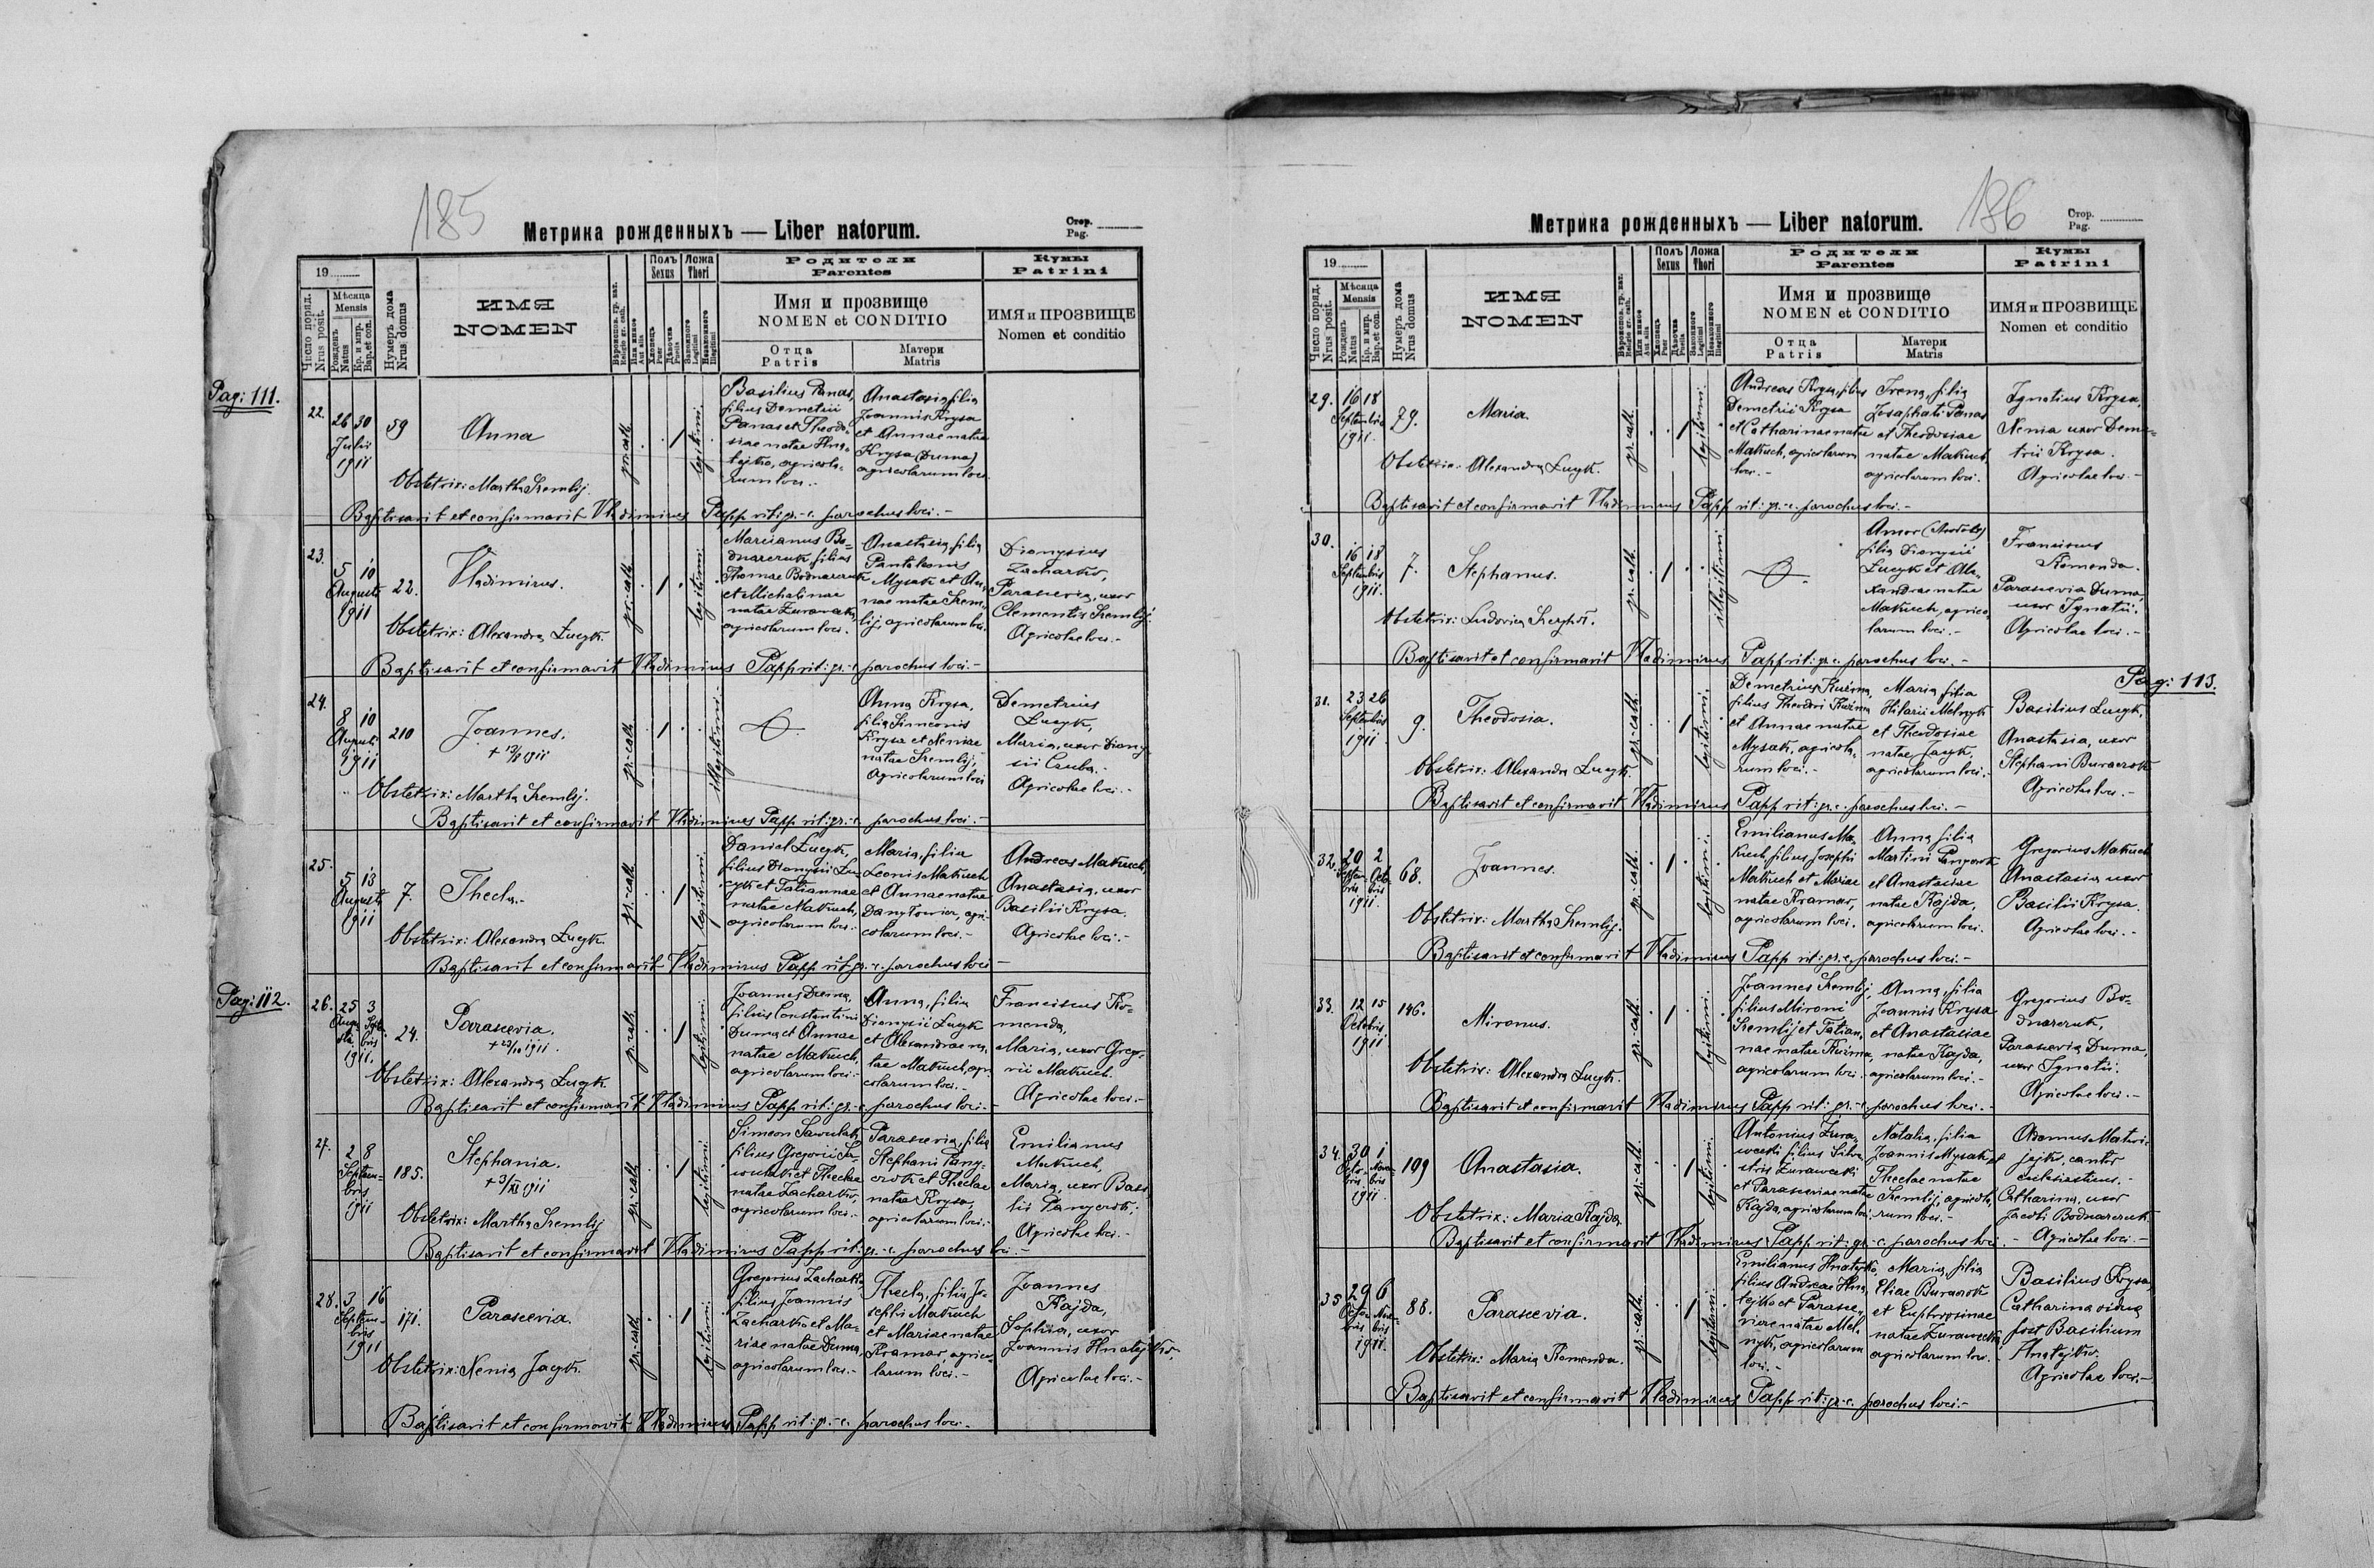 185
Метрика рожденныхъ — Liber natorum.
Стор.
Pag.
19
Число поряд.
Nrus posit.
Мѣсяца
Mensis
Рожденъ
Natus
Кр. и мир.
Bap. et con.
Нумеръ дома
Nrus domus
ИМЯ
NOMEN
Вѣроиспов. гр. кат.
Religio gr. cath.
Или инное
Aut alia
Полъ
Sexus
Хлопецъ
Puer
Дѣвочка
Puella
Ложа
Thori
Законного
Legitimi
Незаконного
Illegitimi
Родители
Parentes
Имя и прозвище
NOMEN et CONDITIO
Отца
Patris
Матери
Matris
Кумы
Patrini
ИМЯ и ПРОЗВИЩЕ
Nomen et conditio
Pag: 111.
22.
26 30
Julii
1911
59
Anna
gr.-cath.
1
legitimi
Basilius Panas,
filius Demetrii
Panas et Theodo-
siae natae Hna-
tejko, agricola-
rum loci.-
Anastasia, filia
Joannis Krysa
et Annae natae
Krysa (Duma)
agricolarum loci
Obstetrix: Martha Kremlij.
Baptisavit et confirmavit Vladimirus Papp rit: gr.-c. parochus loci.-
23.
5 10
Augusti
1911
22.
Vladimirus.
gr.-cath.
1
legitimi
Marcianus Bo-
dnarczuk, filius
Thomae Bodnarczuk
et Michalinae
natae Zurawecka,
agricolarum loci.
Anastasia, filia
Pantaleonis
Mysak et An-
nae natae Krem-
lij, agricolarum loci.
Dionysius
Zacharko,
Parascevia, uxor
Clementis Kremlij.
Agricolae loci.-
Obstetrix: Alexandra Łucyk.
Baptisavit et confirmavit Vladimirus Papp rit: gr.-c. parochus loci.-
24.
8 10
Augusti
1911
210
Joannes.
gr.-cath.
1
illegitimi
Anna Krysa,
filia Simeonis
Krysa et Xeniae
natae Kremlij,
Agricolarum loci
Demetrius
Łucyk,
Maria, uxor Diony-
sii Czuba.-
Agricolae loci.-
Obstetrix: Martha Kremlij.
Baptisavit et confirmavit Vladimirus Papp rit: gr.-c. parochus loci.-
25.
5 13
Augusti
1911
7.
Thecla.-
gr.-cath.
1
legitimi
Daniel Łucyk,
filius Dionysii Łu-
cyk et Tatiannae
natae Makuch,
agricolarum loci.-
Maria, filia
Leonis Makuch
et Annae natae
Danyłowicz, agri-
colarum loci.-
Andreas Makuch,
Anastasia, uxor
Basilii Krysa.
Agricolae loci.-
Obstetrix: Alexandra Łucyk.
Baptisavit et confirmavit Vladimirus Papp rit: gr.-c. parochus loci-
Pag: 112.
26.
25 3
1911.
24.
Parascevia.
+ 23/10 1911.
gr.-cath.
1
legitimi
Joannes Duma,
filius Constantini
Duma et Annae
natae Makuch,
agricolarum loci.-
Anna, filia
Dionysii Łucyk
et Alexandrae na-
tae Makuch, agri-
colarum loci.-
Franciscus Ko-
menda,
Maria, uxor Grego-
rii Makuch.
Agricolae loci.-
Obstetrix: Alexandra Łucyk.
Baptisavit et confirmavit Vladimirus Papp rit: gr.-c. parochus loci.-
27.
2 8
Septem-
bris
1911
185.
Stephania.
+ 3/XI 1911
gr.-cath.
1
legitimi
Simeon Sawulak,
filius Gregorii Sa-
wulak et Theclae
natae Zacharko,
agricolarum loci.-
Parascevia, filia
Stephani Pany-
czok et Theclae
natae Krysa,
agricolarum loci.-
Emilianus
Makuch,
Maria, uxor Basi-
lii Panyczok;
Agricolae loci.-
Obstetrix: Martha Kremlij
Baptisavit et confirmavit Vladimirus Papp rit: gr.-c. parochus loci.-
28.
3 16
Septem-
bris
1911
171.
Parascevia.
gr.-cath.
1
legitimi
Gregorius Zacharko,
filius Joannis
Zacharko et Ma-
riae natae Duma,
agricolarum loci.-
Thecla, filia Jo-
sephi Makuch
et Mariae natae
Kramar, agrico-
larum loci.-
Joannes
Kajda,
Sophia, uxor
Joannis Hnatejko.
Agricolae loci.-
Obstetrix: Xenia Jacyk.
Baptisavit et confirmavit Vladimirus Papp rit: gr.-c. parochus loci.-
186
Метрика рожденныхъ — Liber natorum.
Стор.
Pag.
19
Число поряд.
Nrus posit.
Мѣсяца
Mensis
Рожденъ
Natus
Кр. и мир.
Bap. et con.
Нумеръ дома
Nrus domus
ИМЯ
NOMEN
Вѣроиспов. гр. кат.
Religio gr. cath.
Или инное
Aut alia
Полъ
Sexus
Хлопецъ
Puer
Дѣвочка
Puella
Ложа
Thori
Законного
Legitimi
Незаконного
Illegitimi
Родители
Parentes
Имя и прозвище
NOMEN et CONDITIO
Отца
Patris
Матери
Matris
Кумы
Patrini
ИМЯ и ПРОЗВИЩЕ
Nomen et conditio
29.
16 18
Septembris
1911.
79.
Maria.
gr.-cath.
1
legitimi
Andreas Krysa, filius
Demetrii Krysa
et Catharinae natae
Makuch, agricolarum
loci.-
Irena, filia
Josaphati Panas
et Theodosiae
natae Makuch,
agricolarum loci.
Ignatius Krysa,
Xenia uxor Deme-
trii Krysa.
Agricolae loci.-
Obstetrix: Alexandra Łucyk.
Baptisavit et confirmavit Vladimirus Papp rit: gr.-c. parochus loci.-
30.
16 18
Septembris
1911.
7.
Stephanus.
gr.-cath.
1
illegitimi
filia Dionysii
Łucyk et Ale-
xandrae natae
Makuch, agrico-
larum loci.-
Franciscus
Komenda.
Parascevia Duma,
uxor Ignatii.
Agricolae loci.-
Baptisavit et confirmavit Vladimirus Papp rit: gr.-c. parochus loci.-
Pag: 113.
31.
23 26
Septembris
1911
9.
Theodosia.
gr.-cath.
1
legitimi
Demetrius Kuźma,
filius Theodori Kuźma
et Annae natae
Mysak, agricola-
rum loci.-
Maria filia
Hilarii Melnyk
et Theodosiae
natae Jacyk,
agricolarum loci.-
Basilius Łucyk,
Anastasia, uxor
Stephani Buraczok
Agricolae loci.-
Obstetrix: Alexandra Łucyk.
Baptisavit et confirmavit Vladimirus Papp rit: gr.-c. parochus loci.-
32.
20 2
1911.
68.
Joannes.
gr.-cath.
1
legitimi
Emilianus Ma-
kuch filius Josephi
Makuch et Mariae
natae Kramar,
agricolarum loci.
Anna filia
Martini Panyczok
et Anastasiae
natae Kajda,
agricolarum loci.
Gregorius Makuch
Anastasia uxor
Basilii Krysa.
Agricolae loci.-
Obstetrix: Martha Kremlij.
Baptisavit et confirmavit Vladimirus Papp rit: gr.-c. parochus loci.-
33.
12 15
Octobris
1911
146.
Mironus.
gr.-cath.
1
legitimi
Joannes Kremlij,
filius Mironi
Kremlij et Tatian-
nae natae Kuźma,
agricolarum loci.-
Anna, filia
Joannis Krysa
et Anastasiae
natae Kajda,
agricolarum loci.-
Gregorius Bo-
dnarczuk,
Parascevia Duma,
uxor Ignatii.
Agricolae loci.-
Obstetrix: Alexandra Łucyk.
Baptisavit et confirmavit Vladimirus Papp rit: gr.-c. parochus loci.-
34.
30 1
1911.
109
Anastasia.
gr.-cath.
1
legitimi
Antonius Zura-
wecki filius Silve-
stris Zurawecki
et Parasceviae natae
Kajda, agricolarum loci.
Natalia, filia
Joannis Mysak et
Theclae natae
Kremlij, agricola-
rum loci.-
Adamus Matwi-
jejko, cantor
ecclesiasticus.-
Catharina, uxor
Jacobi Bodnarczuk
Agricolae loci.-
Obstetrix: Maria Kajda.
Baptisavit et confirmavit Vladimirus Papp rit: gr.-c. parochus loci.-
35
29 6
1911.
88.
Parascevia.
gr.-cath.
1
legitimi
Emilianus Hnatejko,
filius Andreae Hna-
tejko et Parasce-
viae natae Mel-
nyk, agricolarum
loci.-
Maria, filia
Eliae Buraczok
et Euphrosinae
natae Zurawecka,
agricolarum loci.-
Basilius Krysa,
Catharina vidua
post Basilium
Hnatejko.
Agricolae loci.-
Obstetrix: Maria Komenda.
Baptisavit et confirmavit Vladimirus Papp rit: gr.-c. parochus loci.-